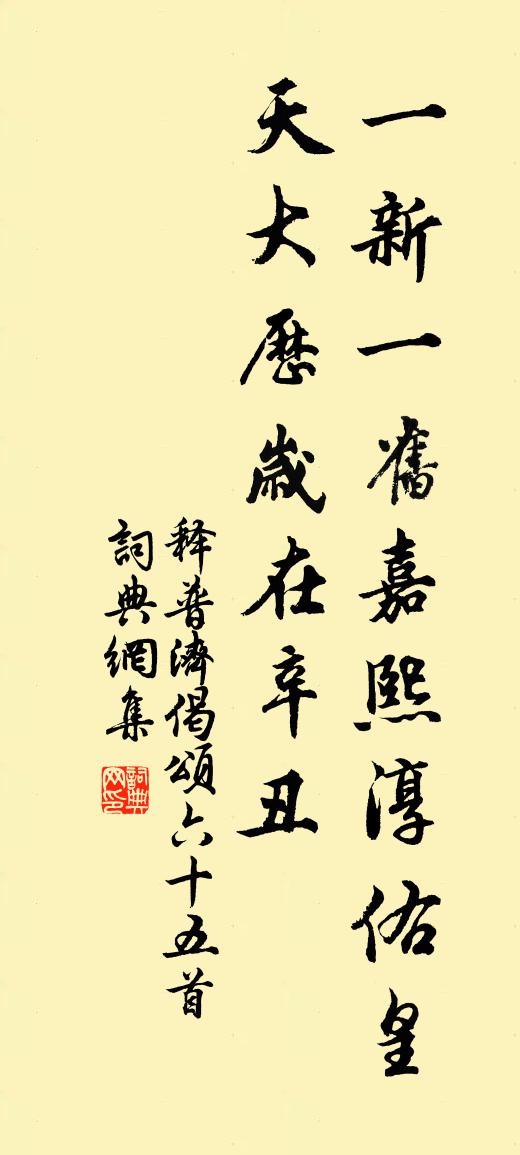 一新一舊嘉熙淳佑皇
天大歷歲在辛丑
释普濟偈頌六十五首
詞典網集
詞典网印